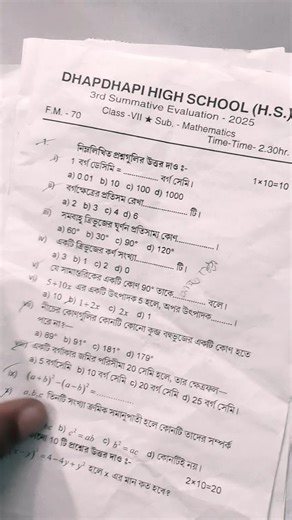 DHAPDHAPI HIGH SCHOOL (H.S.)
3rd Summative Evaluation - 2025
F.M. - 70 Class -VII ★ Sub. - Mathematics
Time-Time- 2.30hr.
নিম্নলিখিত প্রশ্নগুলির উত্তর দাও ঃ- 1×10=10
i) 1 বর্গ ডেসিমি = ............ বর্গ সেমি।
a) 0.01 b) 10 c) 100 d) 1000
ii) বর্গক্ষেত্রের প্রতিসম রেখা............টি।
a) 2 b) 3 c) 4 d) 6
iii) সমবাহু ত্রিভুজের ঘূর্ণন প্রতিসাম্য কোণ............।
a) 60° b) 30° c) 90° d) 120°
iv) একটি ত্রিভুজের কর্ণ সংখ্যা............টি।
a) 3 b) 1 c) 2 d) 0
v) যে সামান্তরিকের একটি কোণ 90° তাকে............বলে।
vi) 5+10x এর একটি উৎপাদক 5 হলে, অপর উৎপাদক............।
a) 10 b) 1+2x c) 2x d) 1
নীচের কোণগুলির কোনটি কোনো কুব্জ বহুভুজের একটি কোণ হতে
পারে না:—
a) 89° b) 91° c) 181° d) 179°
একটি বর্গাকার জমির পরিসীমা 20 সেমি হলে, তার ক্ষেত্রফল—
a) 5 বর্গসেমি b) 10 বর্গ সেমি c) 20 বর্গ সেমি d) 25 বর্গ সেমি।
ix) (a+b)²−(a−b)²=............
x) a,b,c তিনটি সংখ্যা ক্রমিক সমানুপাতী হলে কোনটি তাদের সম্পর্ক
b) c²=ab c) b²=ac d) কোনটিই নয়।
10 টি প্রশ্নের উত্তর দাও ঃ- 2×10=20
=4−4y+y² হলে x এর মান কত হবে?